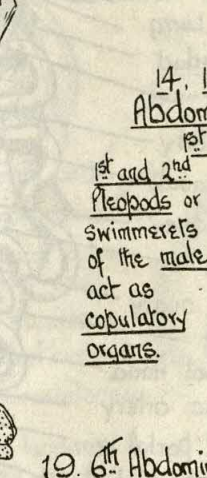 14, 1
Abdom
1st
1st and 2nd
Pleopods or
Swimmerets
of the male
act as
copulatory
organs.
19. 6th Abdomin